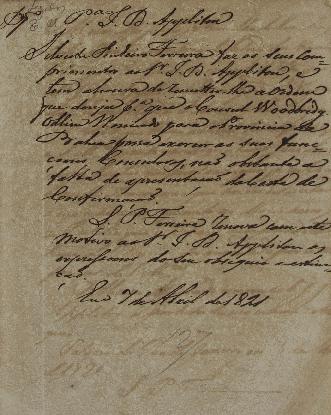 Sr. J. B. Appliton
Silvestre Pinheiro Ferreira faz os seus Com-
primentos ao Sr. J. B. Appliton, e
tem a honra de remetter-lhe a Ordem
que deseja pa. que o Consul Woodbridge
Odlin Nomeado para a Provincia da
Bahia possa exercer as suas func-
coens Consulares, não obstante a
falta de apresentação da Carta de
Confirmação.
S. P. Ferreira renova com este
motivo ao Sr. J. B. Appliton as
expressoens do seu obsequio e estima
Em 7 de Abril de 1821
127